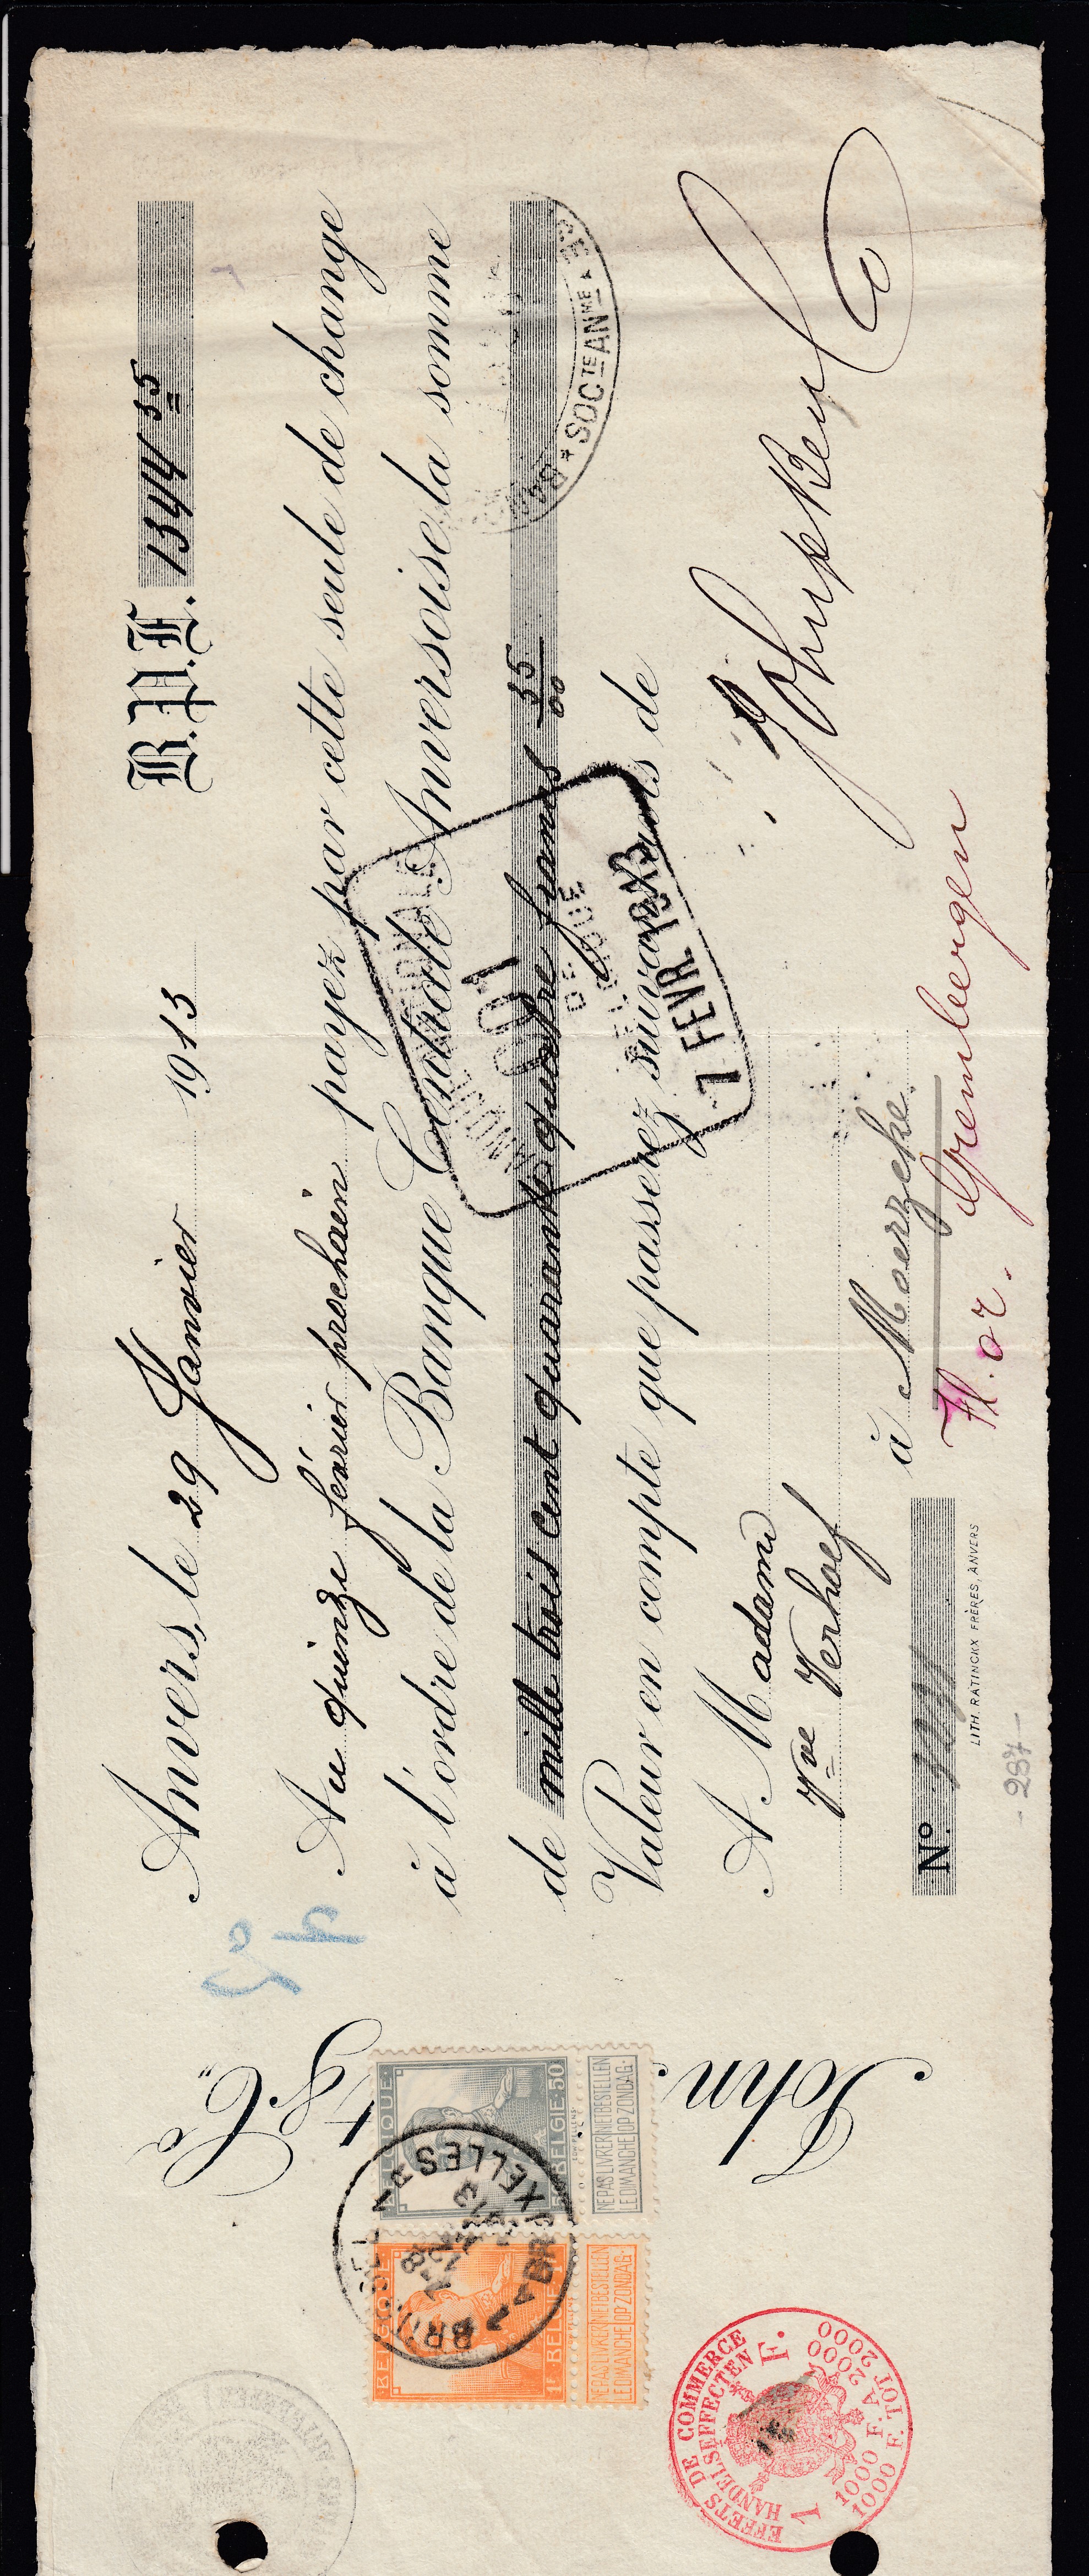 Anvers, le 29 Janvier 1913
B.P.F. 1344 35
Au quinze février prochain payez par cette seule de change
à l'ordre de la Banque Centrale Anversoise la somme
de mille trois cent quarante quatre francs 35/00
Valeur en compte que passerez suivant avis de
A Madame
Vve Verhoef
à Moerzeke
Fl. or. Grembergen
No.
LITH. RATINCKX FRÈRES, ANVERS
- 287 -
John
& Co
BANQUE NATIONALE
001
DE
BELGIQUE
-7 FEVR. 1913
SOCTE ANME
BELGIQUE
50 BELGIE 50
NE PAS LIVRER LE DIMANCHE
NIET BESTELLEN OP ZONDAG
BELGIQUE
1F BELGIE 1F
NE PAS LIVRER LE DIMANCHE
NIET BESTELLEN OP ZONDAG
BRUSSEL
BRUXELLES
EFFETS DE COMMERCE
HANDELSEFFECTEN
1 F.
1000 F. A 2000
1000 F. TOT 2000